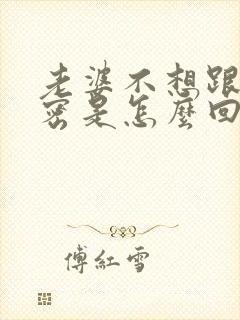 老婆不想跟
密是怎麼回
傅紅雪